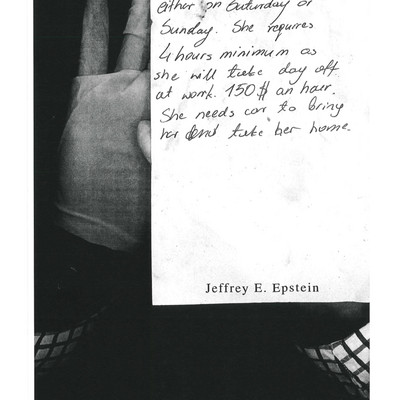 either on Saturday or
Sunday. She requires
4 hours minimum as
she will take day off
at work. 150$ an hour.
She needs car to bring
her and take her home.
Jeffrey E. Epstein